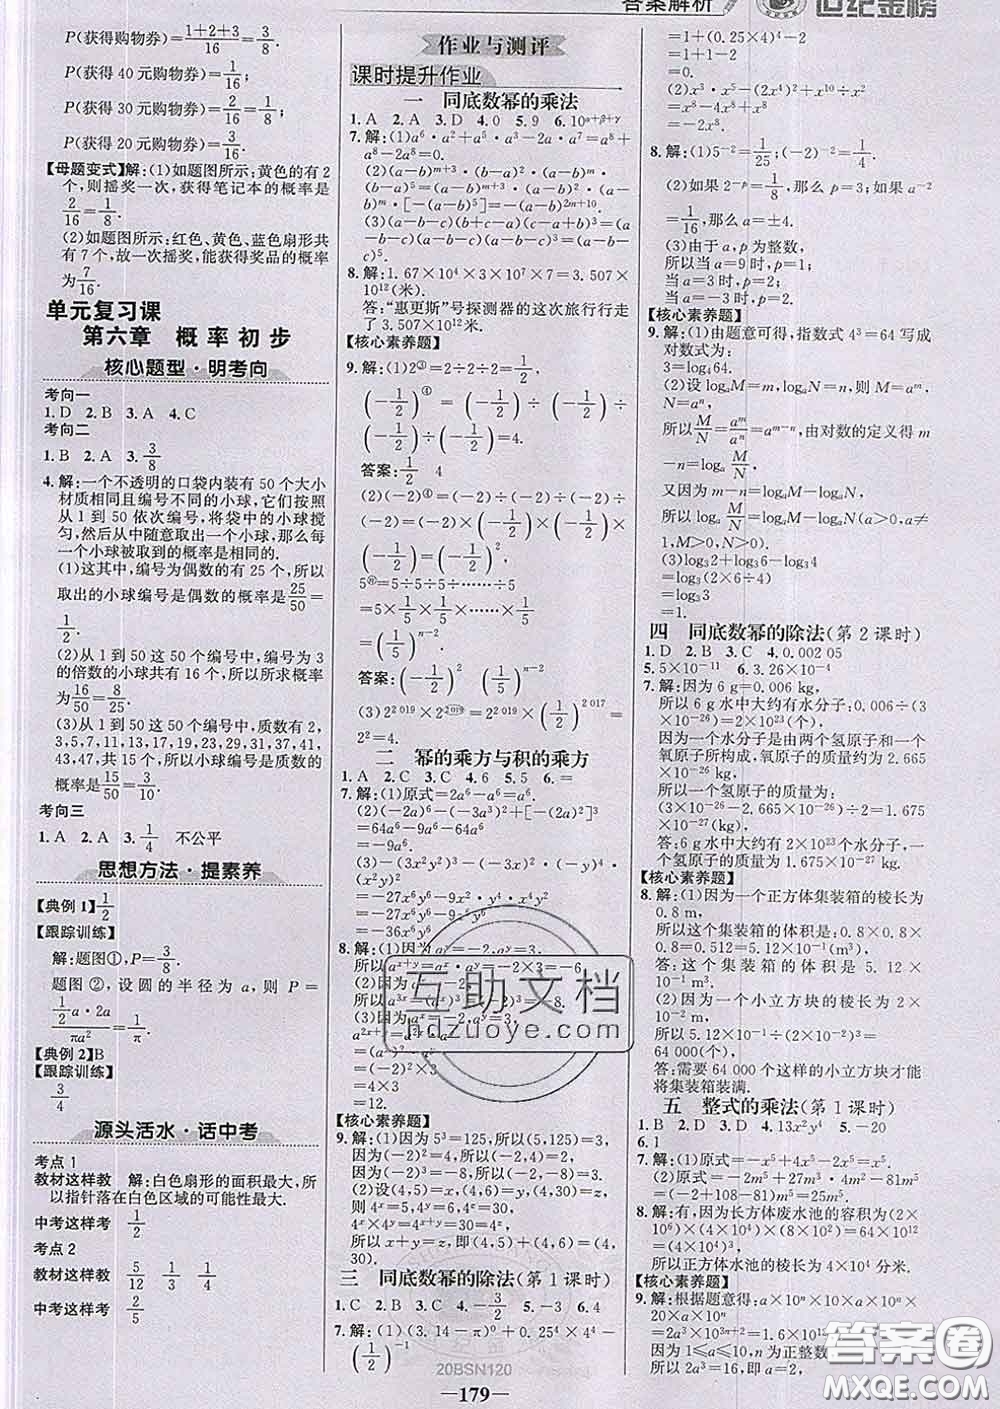 答案解析
世纪金榜
P(获得购物券)=(1+2+3)/16=3/8.
P(获得 40 元购物券)=1/16;
P(获得 30 元购物券)=2/16=1/8;
P(获得 20 元购物券)=3/16.
【母题变式】解:(1)如题图所示:黄色的有 2
个,则摇奖一次,获得笔记本的概率是
2/16=1/8.
(2)如题图所示:红色、黄色、蓝色扇形共
有 7 个,故一次摇奖,能获得奖品的概率
为7/16.
单元复习课
第六章 概率初步
核心题型·明考向
考向一
1. D 2. B 3. A 4. C
考向二
1. B 2. A 3. 3/8
4. 解:一个不透明的口袋内装有 50 个大小
材质相同且编号不同的小球,它们按照
从 1 到 50 依次编号,将袋中的小球搅
匀,然后从中随意取出一个小球,那么每
一个小球被取到的概率是相同的.
(1)这其中,编号为偶数的有 25 个,所以
取出的小球编号是偶数的概率是25/50=
1/2.
(2)从 1 到 50 这 50 个编号中,编号为 3
的倍数的小球共有 16 个,所以所求概率
为16/50=8/25.
(3)从 1 到 50 这 50 个编号中,质数有 2,
3,5,7,11,13,17,19,23,29,31,37,41,
43,47,共 15 个,所以小球编号是质数的
概率是15/50=3/10.
考向三
1. A 2. A 3. 1/4 不公平
思想方法·提素养
【典例 1】1/2
【跟踪训练】
解:题图①,P=3/8.
题图②,设圆的半径为 a,则 P=
(1/2 a·2a)/(πa²)=1/π.
【典例 2】B
【跟踪训练】
3/4
源头活水·话中考
考点 1
教材这样教 解:白色扇形的面积最大,所
以指针落在白色区域的可能性最大.
中考这样考 1/2
考点 2
教材这样教 5/12 1/3 1/4
中考这样考 2/5
作业与测评
课时提升作业
一 同底数幂的乘法
1. A 2. A 3. D 4. 0 5. 9 6. 10^(α+β+γ)
7. 解:(1)a⁶·a²+a⁵·a³-2a·a⁷=a⁸+
a⁸-2a⁸=0.
(2)(a-b)^(m+3)·(b-a)²(a-b)^m·
(b-a)⁵=(a-b)^(m+3)·(a-b)²(a-b)^m
·[-(a-b)⁵]=-(a-b)^(2m+10).
(3)(a-b-c)(b+c-a)(c-a+b)³=
(a-b-c)(a-b-c)(a-b-c)³=(a-b-
c)⁵.
8. 解:1.67×10⁴×3×10⁷×7=3.507×
10¹²(米).
答:“惠更斯”号探测器的这次旅行行走
了 3.507×10¹²米.
【核心素养题】
9. 解:(1)2^③=2÷2÷2=1/2,
(-1/2)^④=(-1/2)÷(-1/2)÷
(-1/2)÷(-1/2)=4.
答案:1/2 4
(2)(-2)^④=(-2)÷(-2)÷(-2)÷
(-2)=(-2)×(-1/2)×(-1/2)×
(-1/2)=(-1/2)².
5^ⓝ=5÷5÷5÷……÷5
=5×1/5×1/5×……×1/5
=(1/5)^(n-2)
答案:(-1/2)² (1/5)^(n-2)
(3)2^2 019×2^(2 019)=2^2 019×(1/2)^2 017=
2²=4.
二 幂的乘方与积的乘方
1. A 2. C 3. C 4. 6 5. 5 6. =
7. 解:(1)原式=2a⁶-a⁶=a⁶.
(2)(-2a²)³-(-3a³)²+[-(2a)²]³
=64a⁶-9a⁶-64a⁶
=-9a⁶.
(3)-(3x²y²)³-(-3x)²·(-y²)²·
(-xy)⁴
=-27x⁶y⁶-9x²·y⁴·x⁴y⁴
=-36x⁶y⁶.
(3)所以
=(a^x)²·
=(-2)²×
=4×3
=12.
【核心素养题】
9. 解:(1)因为 5³=125,所以(5,125)=3,
因为(-2)²=4,所以(-2,4)=2.
(2)设(4,5)=x,(4,6)=y,(4,30)=z,
则 4^x=5,4^y=6,4^z=30,
4^x×4^y=4^(x+y)=30,
所以 x+y=z,即(4,5)+(4,6)=(4,
30).
三 同底数幂的除法(第 1 课时)
1. C 2. B 3. C 4. -3/2 5. -3 6. 4
7. 解:(1)(3.14-π)⁰+0.25⁴×4⁴-
(1/2)^-1
20BSN120
=1+(0.25×4)⁴-2
=0.
(2)x³·x⁵-(2x⁴)²+x¹⁰÷x²
=x⁸-4x⁸+x⁸
=-2x⁸.
8. 解:(1)5^-2=1/25;(-2)^-2=1/4.
(2)如果 2^-p=1/8,那么 p=3;如果 a^-2
=1/16,那么 a=±4.
(3)由于 a,p 为整数,
所以当 a=9 时,p=1;
当 a=3 时,p=2;
当 a=-3 时,p=2.
【核心素养题】
9. 解:(1)由题意可得,指数式 4³=64 写成
对数式为:
3=log₄64.
(2)设 logₐM=m,logₐN=n,则 M=a^m,
N=a^n,
所以M/N=a^m/a^n=a^(m-n),由对数的定义得 m
-n=logₐM/N
又因为 m-n=logₐM-logₐN,
所以 logₐM/N=logₐM-logₐN(a>0,a≠
1,M>0,N>0).
(3)log₃2+log₃6-log₃4
=log₃(2×6÷4)
=log₃3
=1.
四 同底数幂的除法(第 2 课时)
1. D 2. B 3. C 4. 0.002 05
5. 5×10^-11 6. 3.26×10^-4
7. 解:因为 6 g=0.006 kg,
所以 6 g 水中大约有水分子:0.006÷(3
×10^-26)=2×10²³(个).
因为一个水分子是由两个氢原子和一个
氧原子所构成,氧原子的质量约为2.665
×10^-26 kg,
所以一个氢原子的质量为:
(3×10^-26-2.665×10^-26)÷2=1.675
×10^-27(kg).
答:6 g 水中大约有 2×10²³个水分子,一
个氢原子的质量为 1.675×10^-27 kg.
【核心素养题】
8. 解:(1)因为一个正方体集装箱的棱长为
0.8 m,
所以这个集装箱的体积是:0.8×0.8×
0.8=0.512=5.12×10^-1(m³).
答:这个集装箱的体积是 5.12×
10^-1 m³.
(2)因为一个小立方块的棱长为 2×
10^-2 m,
所以 5.12×10^-1÷(2×10^-2)³=
64 000(个).
答:需要 64 000 个这样的小立方块才能
将集装箱装满.
五 整式的乘法(第 1 课时)
1. B 2. D 3. D 4. 13x²y⁴ 5. -20
6. 1
8. 解:有,因为长方体废水池的容积为(2×
10⁶)×(4×10⁴)×(8×10²)=64×10¹²
=(4×10⁴)³.
所以正方体水池的棱长为 4×10⁴ 分米.
【核心素养题】
9. 解:根据题意得:a×10^n×10^n×2×10^n×
所以 2a³=16,即 a³=8,
互助文档
hdzuoye.com
答案圈
MXQE.COM
—179—